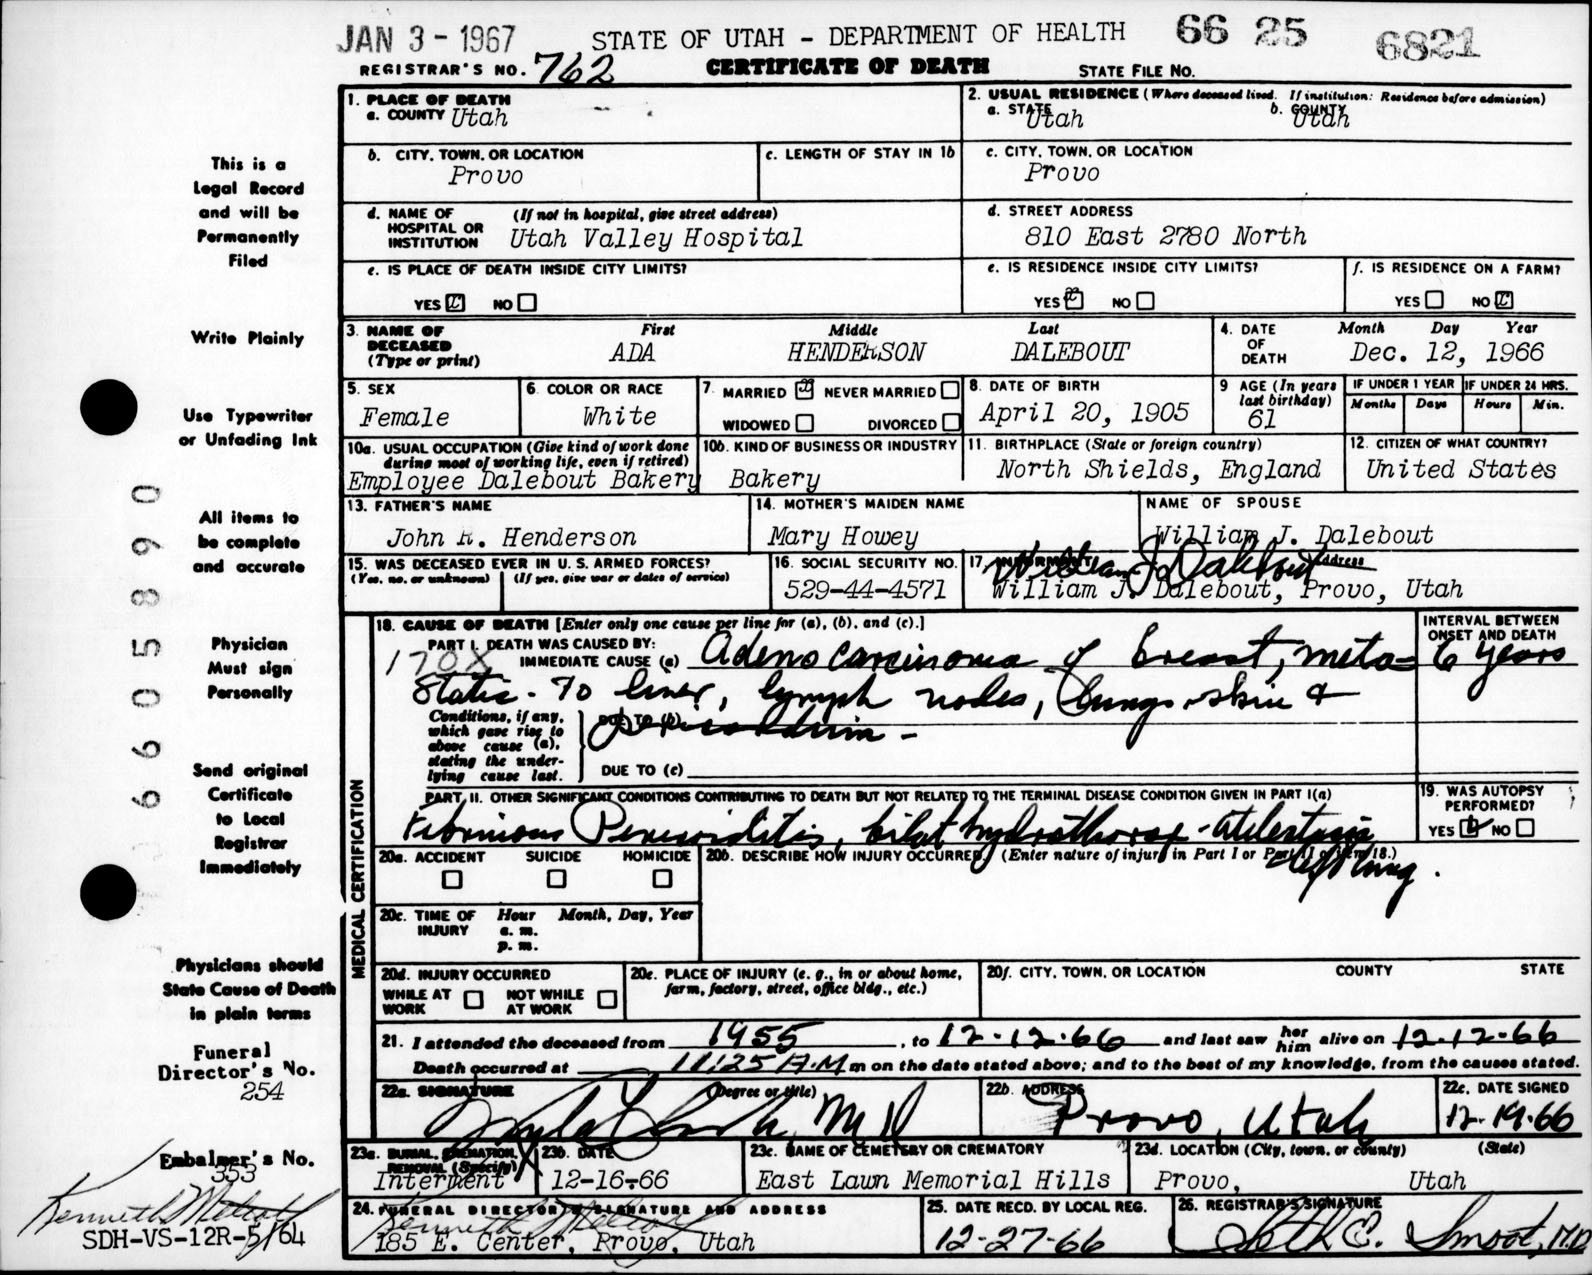 JAN 3 - 1967 STATE OF UTAH - DEPARTMENT OF HEALTH 66 25 6821
REGISTRAR'S NO. 762 CERTIFICATE OF DEATH STATE FILE NO.
1. PLACE OF DEATH
a. COUNTY Utah
2. USUAL RESIDENCE (Where deceased lived. If institution: Residence before admission)
a. STATE Utah b. COUNTY Utah
b. CITY, TOWN, OR LOCATION
Provo
c. LENGTH OF STAY IN 1b
c. CITY, TOWN, OR LOCATION
Provo
d. NAME OF HOSPITAL OR INSTITUTION (If not in hospital, give street address)
Utah Valley Hospital
d. STREET ADDRESS
810 East 2780 North
e. IS PLACE OF DEATH INSIDE CITY LIMITS?
YES x NO
e. IS RESIDENCE INSIDE CITY LIMITS?
YES x NO
f. IS RESIDENCE ON A FARM?
YES NO x
3. NAME OF DECEASED (Type or print)
First Middle Last
ADA HENDERSON DALEBOUT
4. DATE OF DEATH
Month Day Year
Dec. 12, 1966
5. SEX
Female
6. COLOR OR RACE
White
7. MARRIED x NEVER MARRIED
WIDOWED DIVORCED
8. DATE OF BIRTH
April 20, 1905
9 AGE (In years last birthday)
61
IF UNDER 1 YEAR
Months Days
IF UNDER 24 HRS.
Hours Min.
10a. USUAL OCCUPATION (Give kind of work done during most of working life, even if retired)
Employee Dalebout Bakery
10b. KIND OF BUSINESS OR INDUSTRY
Bakery
11. BIRTHPLACE (State or foreign country)
North Shields, England
12. CITIZEN OF WHAT COUNTRY?
United States
13. FATHER'S NAME
John R. Henderson
14. MOTHER'S MAIDEN NAME
Mary Howey
NAME OF SPOUSE
William J. Dalebout
15. WAS DECEASED EVER IN U. S. ARMED FORCES?
(Yes, no, or unknown) (If yes, give war or dates of service)
16. SOCIAL SECURITY NO.
529-44-4571
17. INFORMANT Address
William J. Dalebout
William J. Dalebout, Provo, Utah
18. CAUSE OF DEATH [Enter only one cause per line for (a), (b), and (c).]
PART I. DEATH WAS CAUSED BY:
170X IMMEDIATE CAUSE (a) Adenocarcinoma of breast, meta=
static - to liver, lymph nodes, lungs, skin &
Conditions, if any, which gave rise to above cause (a), stating the underlying cause last.
DUE TO (b) pericardium -
DUE TO (c)
INTERVAL BETWEEN ONSET AND DEATH
6 years
PART II. OTHER SIGNIFICANT CONDITIONS CONTRIBUTING TO DEATH BUT NOT RELATED TO THE TERMINAL DISEASE CONDITION GIVEN IN PART I(a)
Fibrinous Pericarditis, bilat hydrothorax - Atelectasis
lung.
19. WAS AUTOPSY PERFORMED?
YES NO
20a. ACCIDENT SUICIDE HOMICIDE
20b. DESCRIBE HOW INJURY OCCURRED. (Enter nature of injury in Part I or Part II of item 18.)
20c. TIME OF INJURY Hour Month, Day, Year
a. m.
p. m.
20d. INJURY OCCURRED
WHILE AT WORK NOT WHILE AT WORK
20e. PLACE OF INJURY (e. g., in or about home, farm, factory, street, office bldg., etc.)
20f. CITY, TOWN, OR LOCATION COUNTY STATE
MEDICAL CERTIFICATION
21. I attended the deceased from 1955, to 12-12-66 and last saw her him alive on 12-12-66
Death occurred at 11:25 A.M m on the date stated above; and to the best of my knowledge, from the causes stated.
22a. SIGNATURE (Degree or title)
M D
22b. ADDRESS
Provo, Utah
22c. DATE SIGNED
12-19-66
23a. BURIAL, CREMATION, REMOVAL (Specify)
Interment
23b. DATE
12-16-66
23c. NAME OF CEMETERY OR CREMATORY
East Lawn Memorial Hills
23d. LOCATION (City, town, or county) (State)
Provo, Utah
24. FUNERAL DIRECTOR'S SIGNATURE AND ADDRESS
185 E. Center, Provo, Utah
25. DATE RECD. BY LOCAL REG.
12-27-66
26. REGISTRAR'S SIGNATURE
Seth E. Smoot, M.D
This is a
Legal Record
and will be
Permanently
Filed
Write Plainly
Use Typewriter
or Unfading Ink
All items to
be complete
and accurate
Physician
Must sign
Personally
Send original
Certificate
to Local
Registrar
Immediately
Physicians should
State Cause of Death
in plain terms
Funeral
Director's No.
254
Embalmer's No.
353
Kenneth Metcalf
SDH-VS-12R-5/64
66 05890